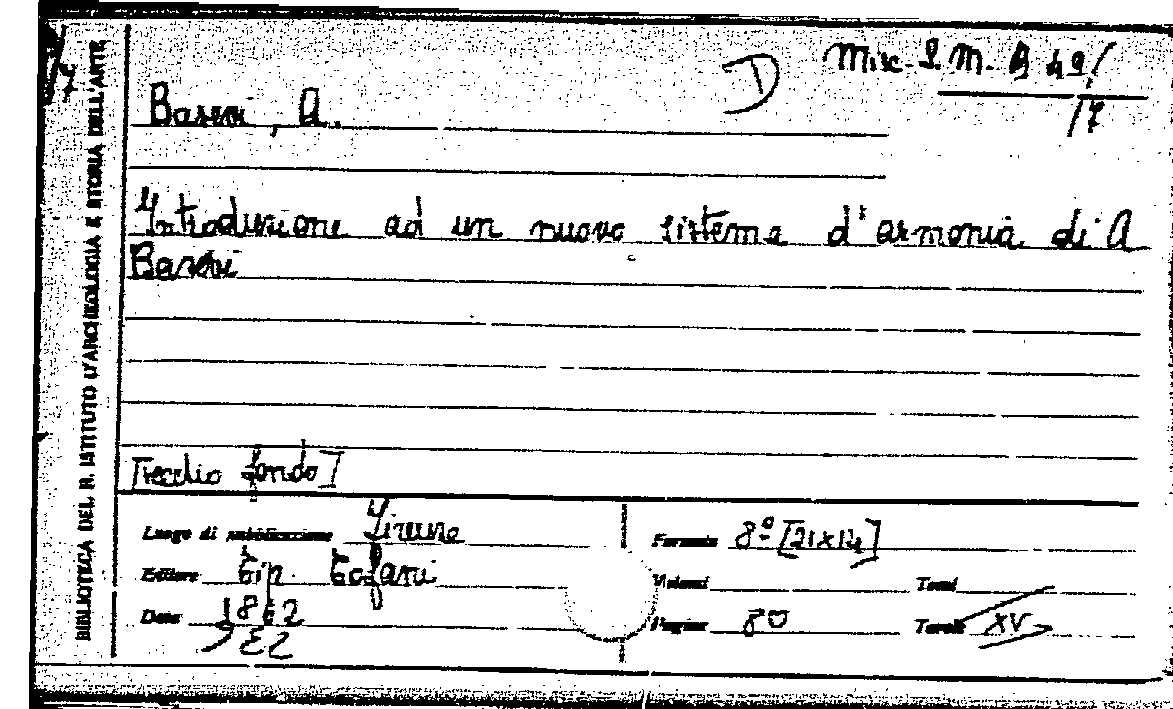 Misc. 2 M. B 49/
17
D
Basevi, A.
Introduzione ad un nuovo sistema d'armonia di A
Basevi
Vecchio fondo I
Luogo di pubblicazione Firenze
Formato 8º [21x14]
Editore Tip. Tofani
Volumi
Tomi
Data 1862
Pagine 80
Tavole XV
BIBLIOTECA DEL R. ISTITUTO D'ARCHEOLOGIA E STORIA DELL'ARTE